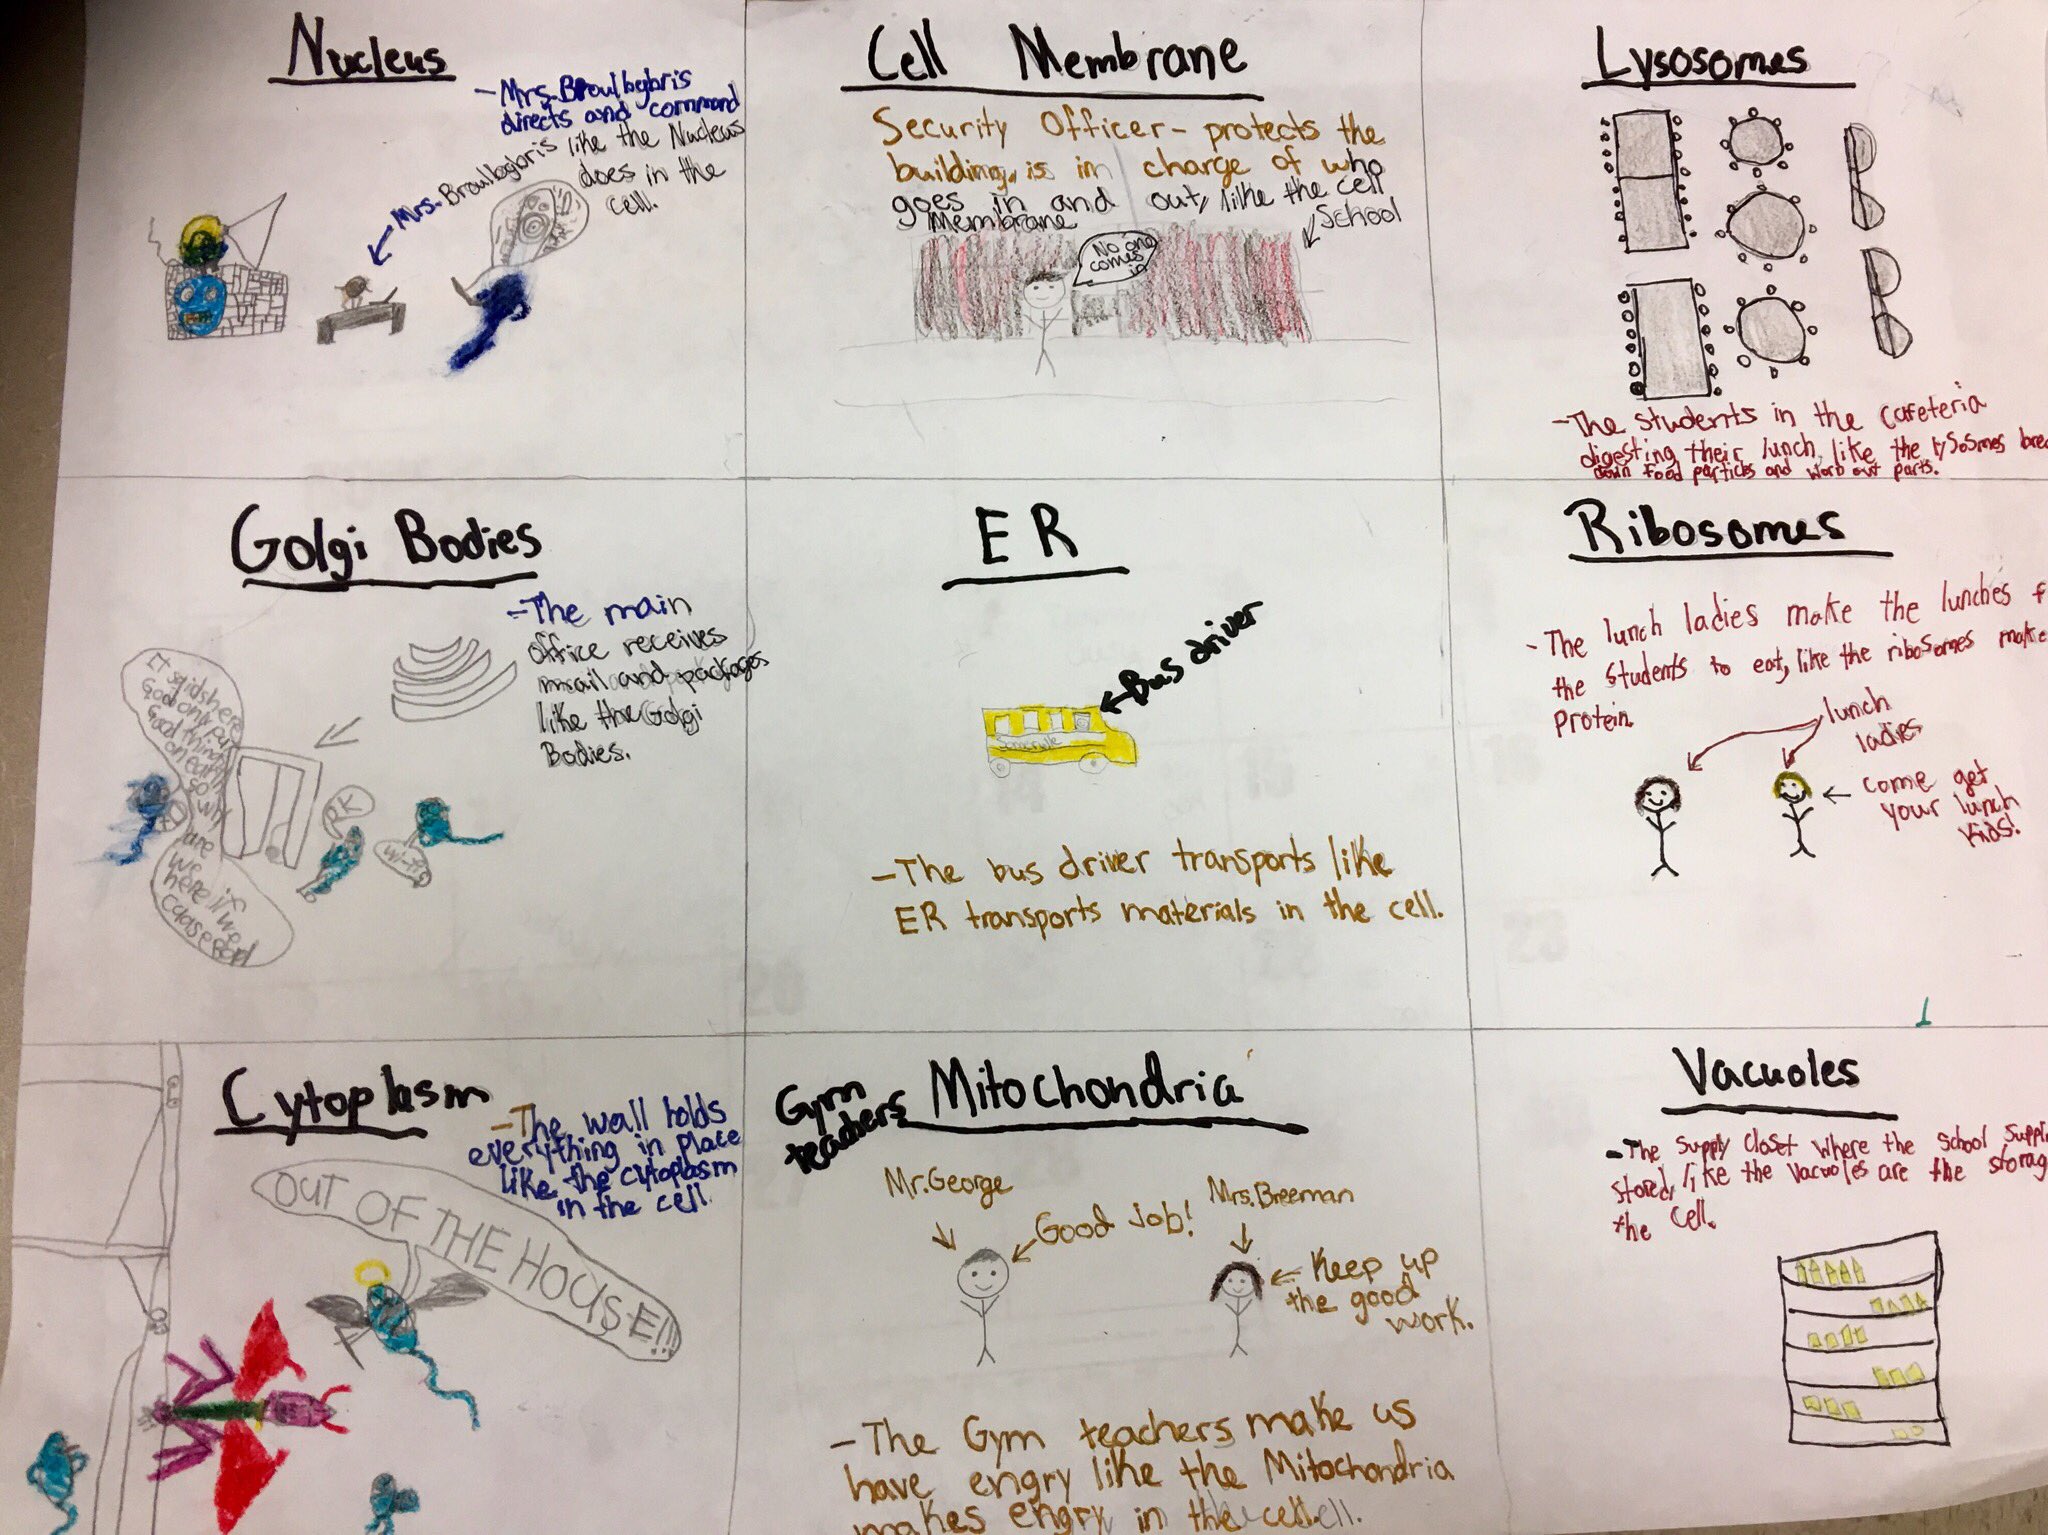 Nucleus
- Mrs. Broulbgbris
directs and command
like the Nucleus
does in the
cell.
Mrs. Broulbgbris
Cell Membrane
Security Officer - protects the
building, is in charge of who
goes in and out, like the cell
Membrane
School
No one
comes
in
Lysosomes
- The students in the cafeteria
digesting their lunch, like the lysosmes brea
down food particles and worb out parts.
Golgi Bodies
- The main
office receives
mail and packages
like the Golgi
Bodies.
good only put
good things
on earth
so why
are
we
here if we
ER
Bus driver
- The bus driver transports like
ER transports materials in the cell.
Ribosomes
- The lunch ladies make the lunches f
the students to eat, like the ribosomes make
protein.
lunch
ladies
come get
your lunch
kids!
Cytoplasm
- The wall holds
everything in place
like the cytoplasm
in the cell.
OUT OF THE HOUSE!!!
Gym
teachers
Mitochondria
Mr. George
Good Job!
Mrs. Breeman
Keep up
the good
work.
- The Gym teachers make us
have engry like the Mitochondria
makes engry in the cell.
Vacuoles
- The supply closet where the school suppli
stored, like the vacuoles are the storag
the cell.